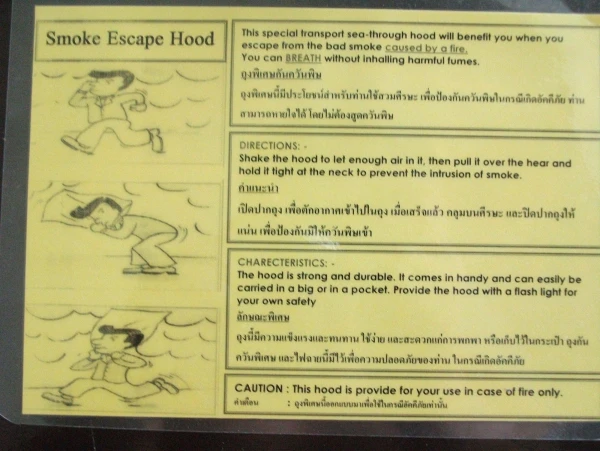 Smoke Escape Hood
This special transport sea-through hood will benefit you when you
escape from the bad smoke caused by a fire.
You can BREATH without inhalling harmful fumes.
ถุงพิเศษกันควันพิษ
ถุงพิเศษนี้มีประโยชน์สำหรับท่านใช้สวมศีรษะ เพื่อป้องกันควันพิษในกรณีเกิดอัคคีภัย ท่าน
สามารถหายใจได้ โดยไม่ต้องสูดควันพิษ
DIRECTIONS: -
Shake the hood to let enough air in it, then pull it over the hear and
hold it tight at the neck to prevent the intrusion of smoke.
คำแนะนำ
เปิดปากถุง เพื่อตักอากาศเข้าไปในถุง เมื่อเสร็จแล้ว คลุมบนศีรษะ และปิดปากถุงให้
แน่น เพื่อป้องกันมิให้ควันพิษเข้า
CHARECTERISTICS: -
The hood is strong and durable. It comes in handy and can easily be
carried in a big or in a pocket. Provide the hood with a flash light for
your own safety
ลักษณะพิเศษ
ถุงนี้มีความแข็งแรงและทนทาน ใช้ง่าย และสะดวกแก่การพกพา หรือเก็บไว้ในกระเป๋า ถุงกัน
ควันพิเศษ และไฟฉายนี้มีไว้เพื่อความปลอดภัยของท่าน ในกรณีเกิดอัคคีภัย
CAUTION : This hood is provide for your use in case of fire only.
คำเตือน : ถุงพิเศษนี้ออกแบบมาเพื่อใช้ในกรณีอัคคีภัยเท่านั้น